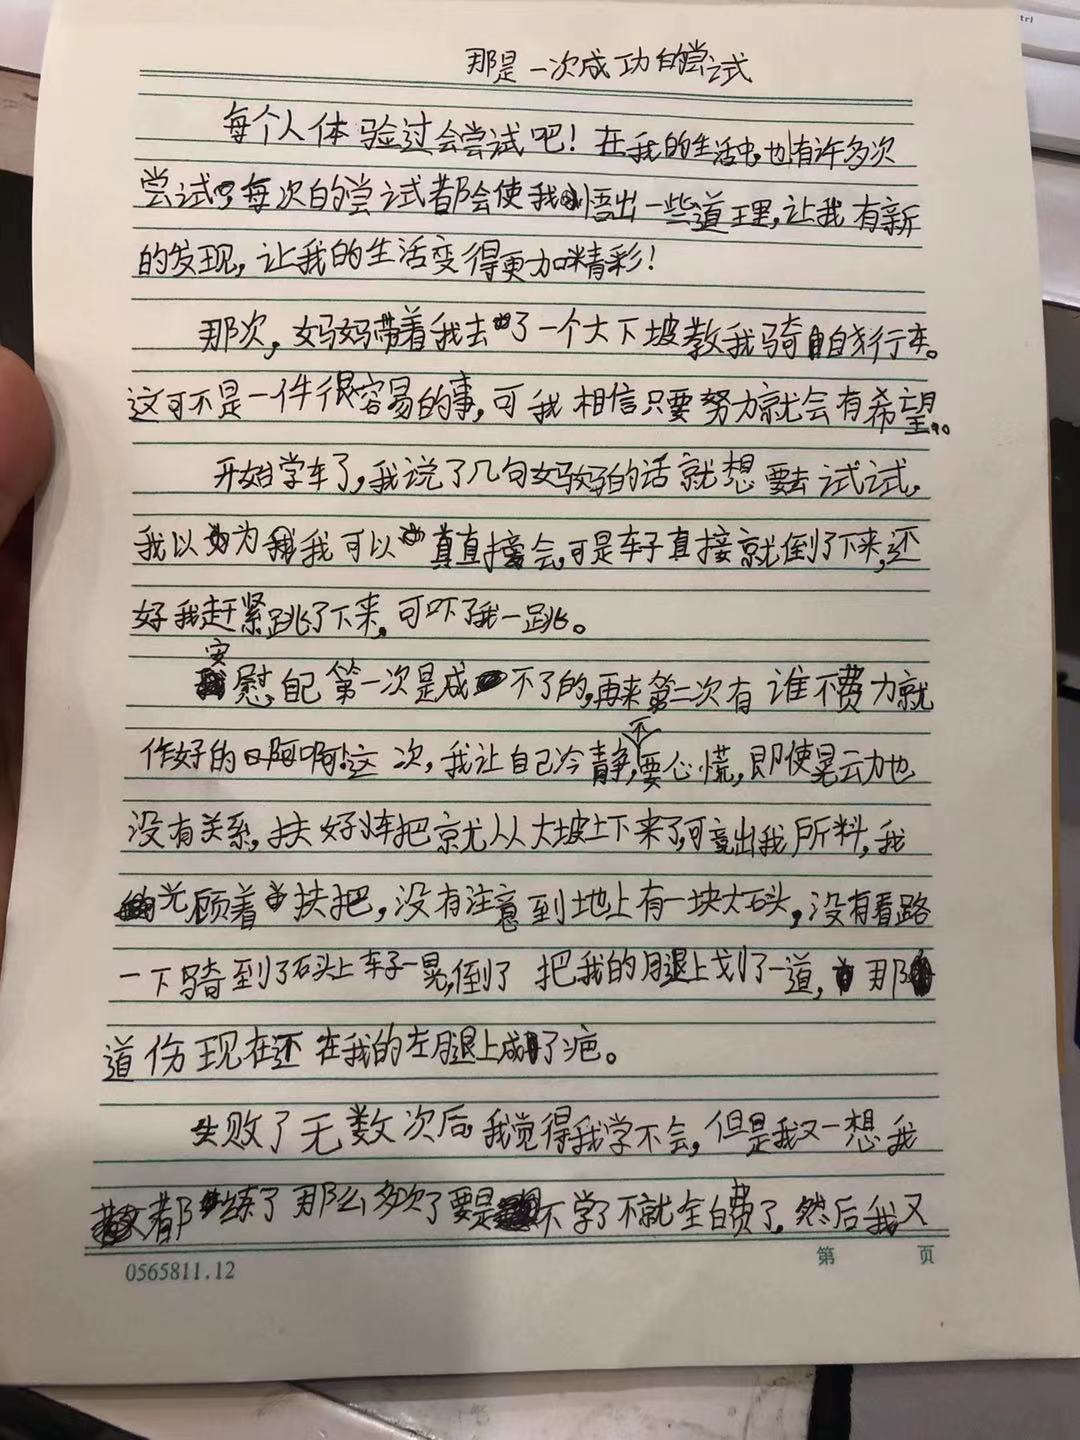 那是一次成功的尝试
每个人体验过会尝试吧！在我的生活中,也有许多次
尝试。每次的尝试都会使我悟出一些道理,让我有新
的发现,让我的生活变得更加精彩！
那次,妈妈带着我去了一个大下坡教我骑自行车。
这可不是一件很容易的事,可我相信只要努力就会有希望。
开始学车了,我说了几句妈妈的话就想要去试试,
我以为我可以直接会,可是车子直接就倒了下来,还
好我赶紧跳了下来,可吓了我一跳。
安慰自己第一次是成不了的,再来第二次有谁不费力就
作好的啊！这次,我让自己冷静,不要心慌,即使晃动也
没有关系,扶好车把就从大坡上下来了,可竟出我所料,我
光顾着扶把,没有注意到地上有一块大石头,没有看路
一下骑到了石头上车子一晃,倒了把我的腿上划了一道,那
道伤现在还在我的左腿上成了疤。
失败了无数次后,我觉得我学不会,但是我又一想我
都练了那么多次了要是不学了不就全白费了。然后我又
0565811.12
第 页